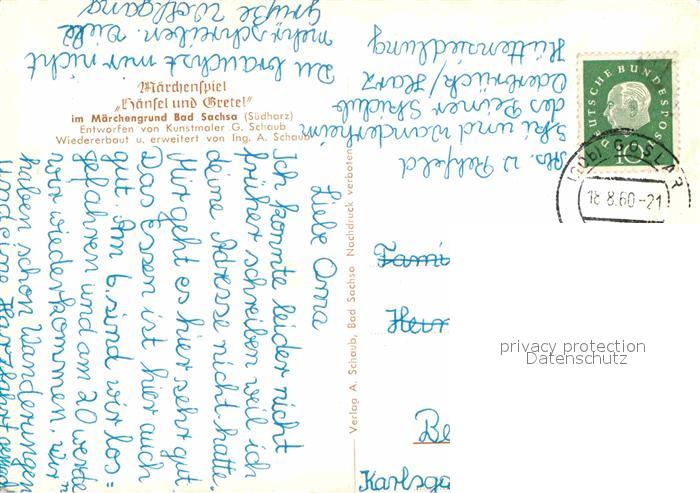 Märchenspiel
„Hänsel und Gretel"
im Märchengrund Bad Sachsa (Südharz)
Entworfen von Kunstmaler G. Schaub
Wiedererbaut u. erweitert von Ing. A. Schaub
Verlag A. Schaub, Bad Sachsa Nachdruck verboten
Liebe Oma
Ich konnte leider nicht
früher schreiben weil ich
deine Adresse nicht hatte.
Mir geht es hier sehr gut.
Das Essen ist hier auch
gut. Am 6. sind wir los=
gefahren und am 20 werde
wir wiederkommen. Wir
haben schon Wanderungen
und eine Harzfahrt gemacht
Du brauchst mir nicht
mehr schreiben. Viele
Grüße Wolfgang
Abs. W Rehfeld
Ski und Wanderheim
des Peiner Skiclub
Oderbrück/Harz
Hüttensiedlung
Fami
Herr
Be
DEUTSCHE BUNDESPOST
10
GOSLAR
18.8.60-21
privacy protection
Datenschutz